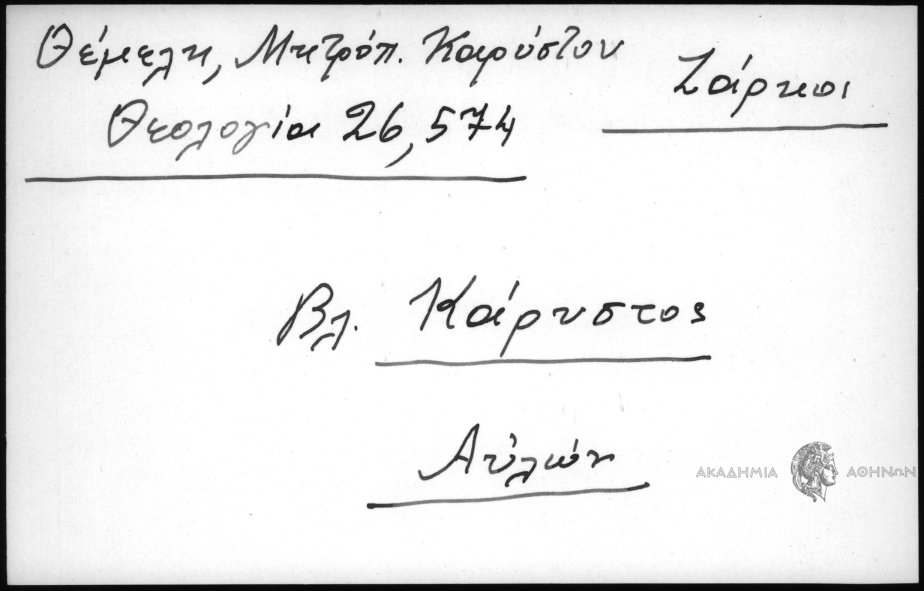 Θέμελη, Μητρόπ. Καρύστου
Ζάρκοι
Θεολογία 26, 574
Βλ. Κάρυστος
Αὐλών
ΑΚΑΔΗΜΙΑ ΑΘΗΝΩΝ